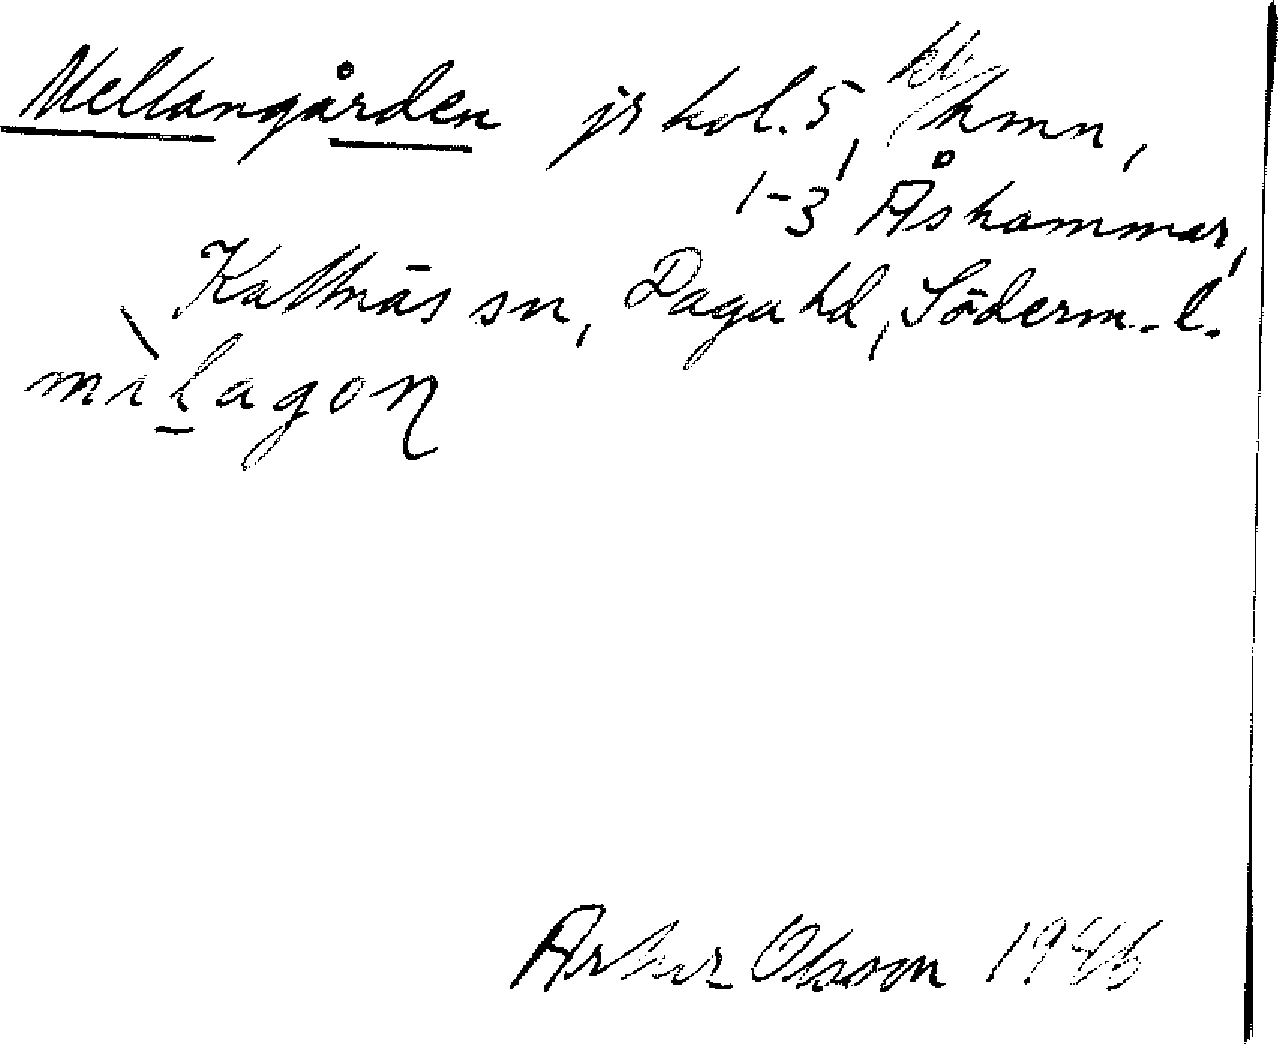 Mellangården jr kol. 5, hmn,
1-3 Åshammar,
Kattnäs sn, Daga hd, Söderm. l.
Artur Olsson 1946